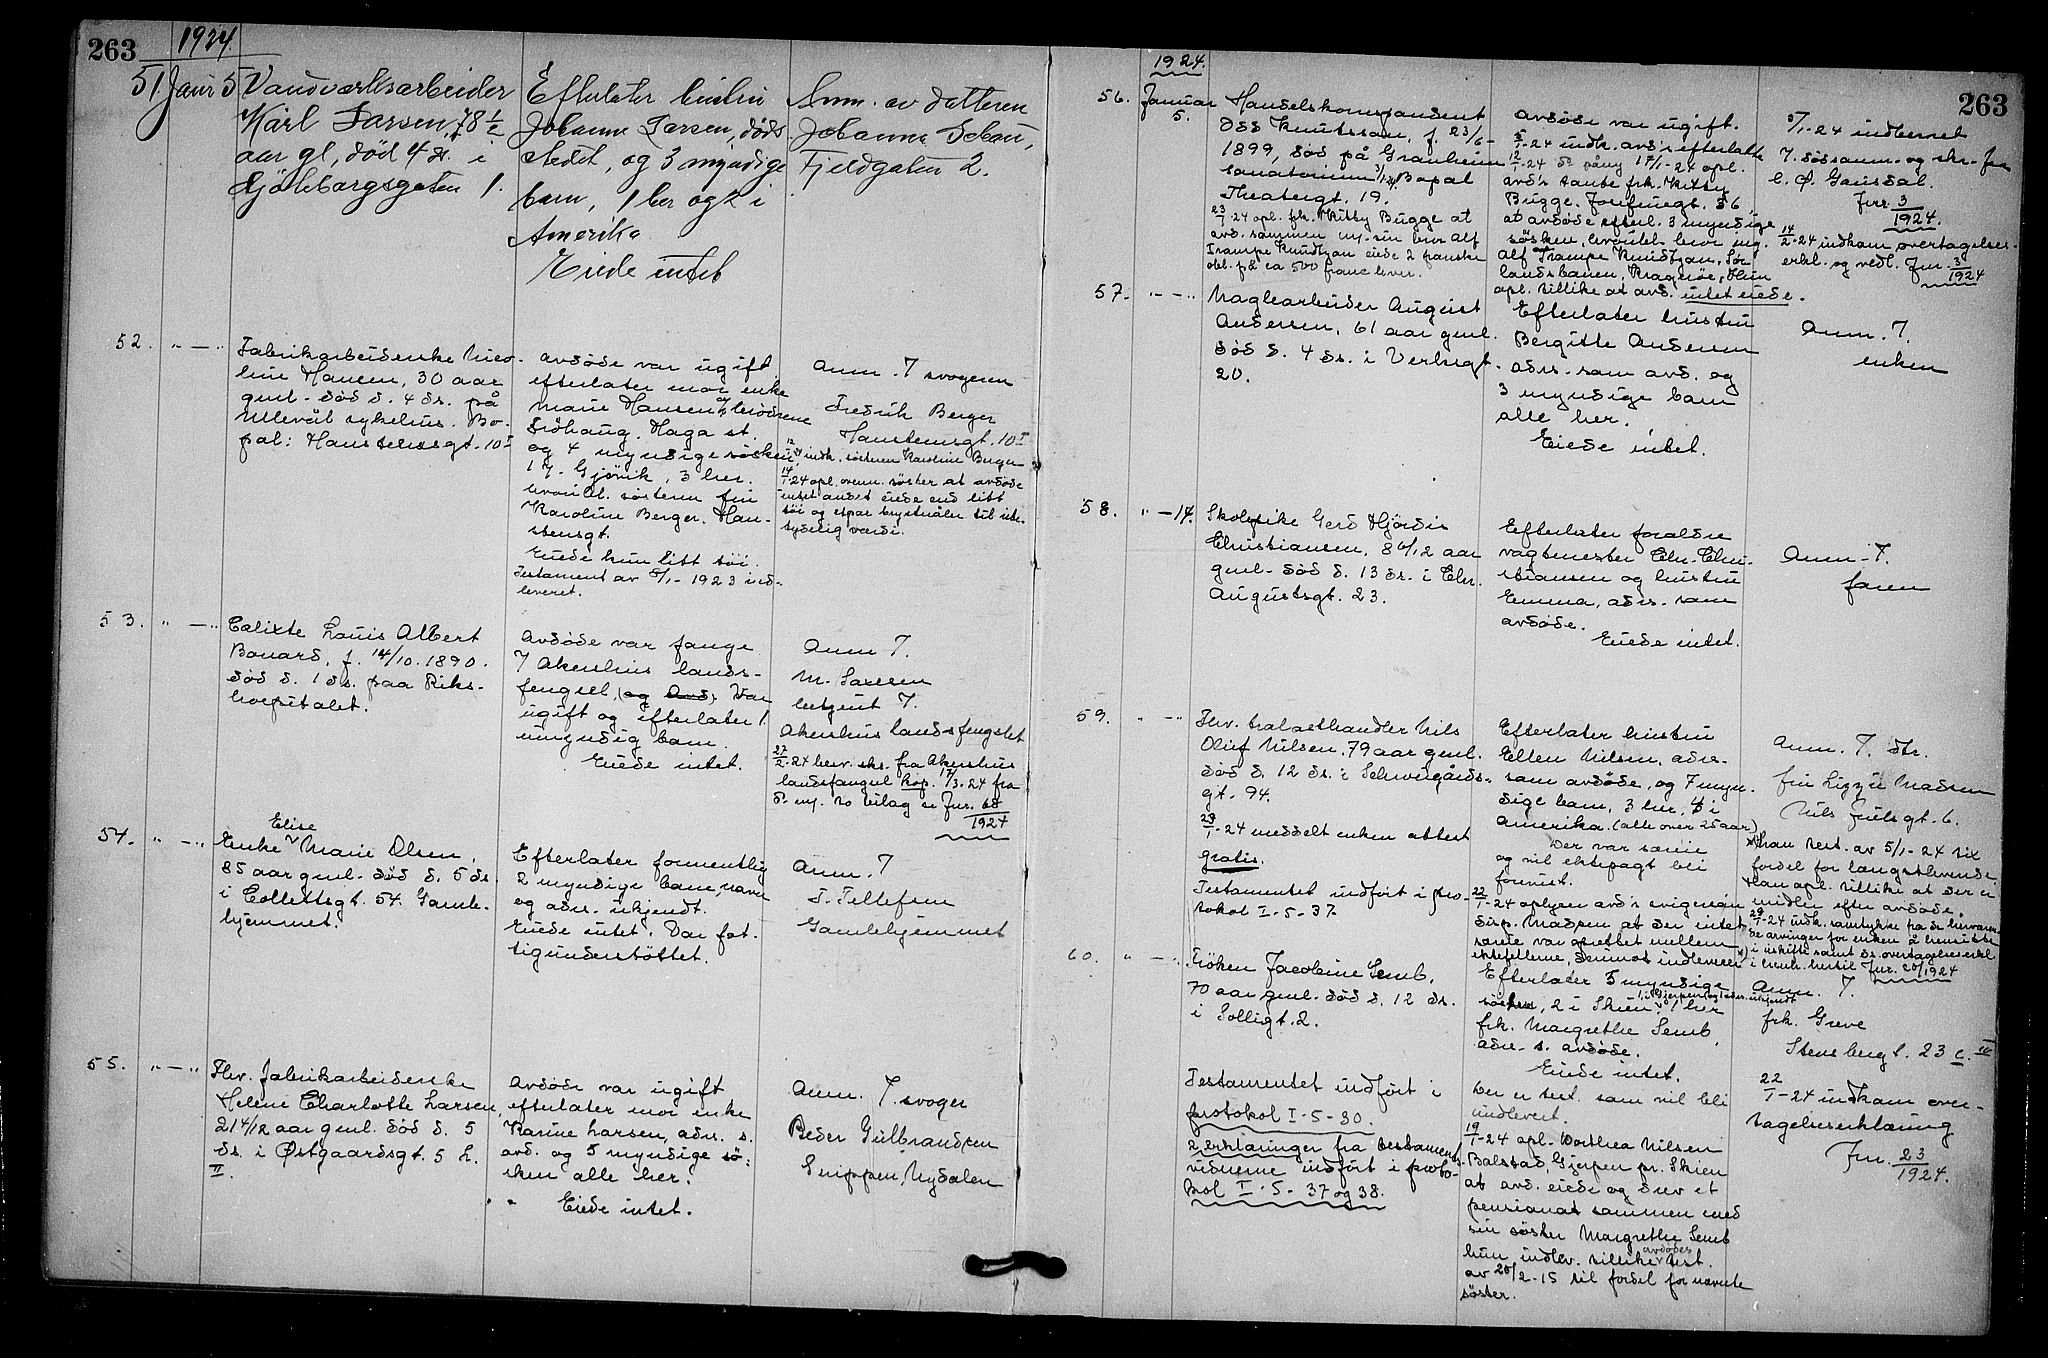 263
1924.
51 Janr 5 Vandværksarbeider
Karl Larsen, 78 1/2
aar gl, død 4 ds. i
Gjøteborgsgaten 1.
Efterlater hustru
Johanne Larsen, døds
stedet, og 3 myndige
barn, 1 her og 2 i
Amerika
Eiede intet
Anm. av datteren
Johanne
Fjeldgaten 2.
52. " — "
Fabrikarbeiderske Nico-
line Hansen, 30 aar
gml. død d. 4 ds. på
Ullevål sykehus. Bo-
pæl: Hansteensgt. 10 I
avdøde var ugift
efterlater mor enke
Marie Hansen
Haga st.
og 4 myndige søsken
1 p. Gjøvik, 3 her.
hvoribl. søsteren fru
Karoline Berger. Han-
steensgt.
Eiede kun litt tøi.
Testament av 8/1-1923 ind-
leveret.
Anm. 7 svogeren
Fredrik Berger
Hansteensgt. 10 I
12/1 24 indk. søsteren Karoline Berger
14/1-24 opl. ovenn. søster at avdøde
intet andet eiede end litt
tøi og et par brystnåler til ube-
tydelig værdi.
53. " — "
Calixte Louis Albert
Bouard, f. 14/10. 1890.
død d. 1 ds. paa Riks-
hospitalet.
Avdøde var fange
7 Akershus lands-
fengsel, (og Avd.) Var
ugift og efterlater 1
umyndig barn.
Eiede intet.
Anm 7.
M. Larsen
betjent 7.
Akershus landsfengslet
27/2-24 besv. sks. fra Akershus
landsfængsel kop. 17/3-24 fra
d. m. 20 bilag se Jnr. 68/1924
54. " — "
Enke Elise Marie Olsen,
85 aar gml. død d. 5 ds.
i Collettsgt. 54. Gamle-
hjemmet.
Efterlater formentlig
2 myndige barn, navn
og adrs. ukjendt.
Eiede intet. Var fat-
tigunderstøttet.
Anm. 7
T. Tellefsen
Gamlehjemmet
55. " — "
Fhv. fabrikarbeiderske
Helene Charlotte Larsen,
21 4/12 aar gml. død d. 5
ds. i Østgaardsgt. 5 L.
II.
Avdøde var ugift
efterlater mor enke
Karine Larsen, adrs. s.
avd. og 5 myndige sø-
sken alle her.
Eiede intet.
Anm. 7 svoger
Peder Gulbrandsen
Snippen, Nydalen
263
1924.
56. Januar 5.
Handelskorrespondent
Odd Knutssøn, f. 23/6-
1899, død på Granheim
sanatorium 3/1 24 Bopæl
Theatergt. 19.
23/1-24 opl. frk. Kitty Bugge at
avd. sammen m. sin bror Alf
Trampe Knudtzon eiede 2 franske
obl. på ca 500 franc hver.
avdøde var ugift.
5/1-24 indk. avd's efterlatte
12/1-24 do påny 17/1-24 opl.
avd's tante frk. Kitty
Bugge. Josefinegt. 36.
at avdøde efterl. 3 myndige
søsken, hvoribl. bror ing.
Alf Trampe Knudtzon, Sør
landsbanen, Kragerøe, Hun
opl. tillike at avd. intet eiede.
5/1-24 indberet
7. dødsanm. og skr. fra
C. Ø. Gausdal.
Jnr. 3/1924.
14/2-24 indkom overtagelses-
erkl. og vedl. Jnr. 3/1924
57. " — "
Maglearbeider August
Andersen, 61 aar gml.
død d. 4 ds. i Verksgt.
20.
Efterlater hustru
Bergitte Andersen
adrs. som avd. og
3 myndige barn
alle her.
Eiede intet.
Anm. 7.
enken
58. " — 14.
Skolepike Gerd Hjørdis
Christiansen, 8 6/12 aar
gml. død d. 13 ds. i Chr.
Augustsgt. 23.
Efterlater forældre
vagtmester Chr. Chri-
stiansen og hustru
Emma, adrs. som
avdøde.
Eiede intet.
Anm. 7.
faren
59. " — "
Fhv. trælasthandler Nils
Oluf Nilsen, 79 aar gml.
død d. 12 ds. i Schweigårds-
gt. 94.
23/1-24 meddelt enken attest
gratis.
Testamentet indført i pro-
tokol I-5-37.
Efterlater hustru
Ellen Nilsen, adrs.
som avdøde, og 7 myn-
dige barn, 3 her, 4 i
Amerika. (alle over 25 aar)
Der var særeie
og vil ektepagt bli
forevist.
22/1-24 oplyser avd's svigersøn
disp. Madsen at der intet
særeie var oprettet mellem
ektefellerne, derimot indleverer
Anm. 7. dtr.
fru Lizzie Madsen
Nils Juelsgt. 6.
x) han test. av 5/1-24 til
fordel for længstlevende.
Han opl. tillike at der er
midler efter avdøde.
29/1-24 indk. samtykke fra de herværen-
de arvinger for enken å hensitte
i uskifte samt ds. overtagelseserkl
i henh. hertil Jnr. 20/1924
60. " — "
Frøken Jacobine Semb,
70 aar gml. død d. 12 ds.
i Solligt. 2.
Testamentet indført i
protokol I-5-30.
2 erklæringer fra testaments-
vidnerne indført i proto-
kol I-5-37 og 38.
Efterlater 5 myndige
søsken, 2 i Skien, 1 i Gjerpen og 1 adrs. ukjendt 1 her
frk. Margrethe Semb,
adr. s. avdøde.
Eiede intet.
Der er test. som vil bli
indlevert.
19/1-24 opl. Dorthea Nilsen
Balstad, Gjerpen pr. Skien
at avd. eiede og drev et
pensionat sammen med
sin søster Margrethe Semb
hun indlev. tillike avdødes test.
av 20/2-15 til fordel for nævnte
søster.
Anm. 7.
frk. Greve
Stensbergt. 23 c. III
22/1-24 indkom over-
tagelseserklæring
Jnr. 23/1924.